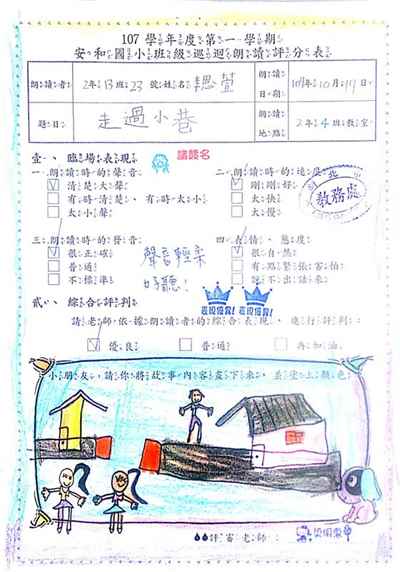 107學年度第一學期
安和國小班級巡迴朗讀評分表
朗讀者 2年13班23號姓名
朗讀日期 107年10月19日
題目 走過小巷
朗讀地點 2年4班教室
壹、臨場表現
請讀名
一、朗讀時的聲音
清楚大聲
有時清楚、有時太小
太小聲
二、朗讀時的速度
剛剛好
太快
太慢
教務處
三、朗讀時的發音
很正確
普通
不標準
聲音輕柔
好聽!
四、表情、態度
很自然
有點緊張害怕
說不出話來
表現優異! 表現優異!
貳、綜合評判
請老師依據朗讀者的綜合表現,進行評判
優良 普通 再加油
小朋友,請你將故事內容畫下來,並塗上顏色
評審老師: